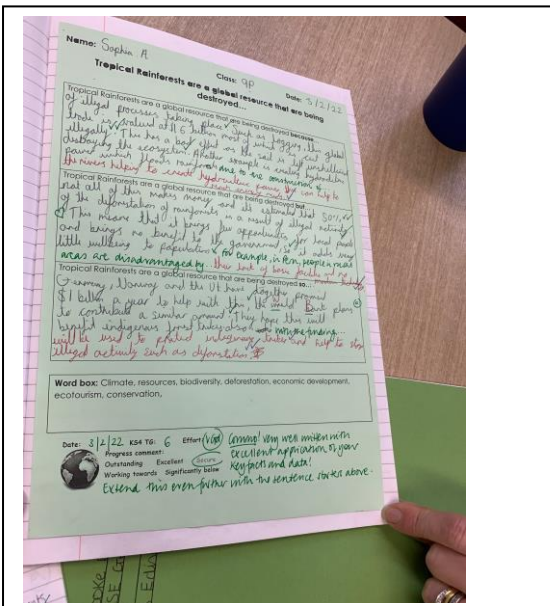 Name: Sophia A
Class: 9P
Date: 3/2/22
Tropical Rainforests are a global resource that are being
destroyed...
Tropical Rainforests are a global resource that are being destroyed because
of illegal processes taking place such as logging, this global
trade is valued at 116 billion most of which is cut
illegally. This has a bad effect on the soil is left
destroying the ecosystem. Another example is creating hydroelectric
power which floods rainforest due to the construction
the rivers helping to create hydroelectric power. This can help to
Tropical Rainforests are a global resource that are being destroyed but
not all of this makes money and its estimated that 80%
of the deforestation of rainforests is a result of illegal activity
This means that it brings few opportunities for local people
and brings no benefit to the government, so it adds very
little wellbeing to population for example, in Peru, people in rural
areas are disadvantaged by their lack of basic
Tropical Rainforests are a global resource that are being destroyed so...
Germany, Norway and the UK have together promised
$1 billion a year to help with this, the World Bank plans
to contribute a similar amount. They hope this will
benefit indigenous forest tribes also with the funding...
will be used to protect indigenous tribes and help to stop
illegal activity such as deforestation
Word box: Climate, resources, biodiversity, deforestation, economic development,
ecotourism, conservation,
Date: 3/2/22 KS4 TG: 6 Effort: VGd
Progress comment:
Outstanding Excellent Secure
Working towards Significantly below
very well written with
excellent application of your
key facts and data!
Extend this even further with the sentence starters above.